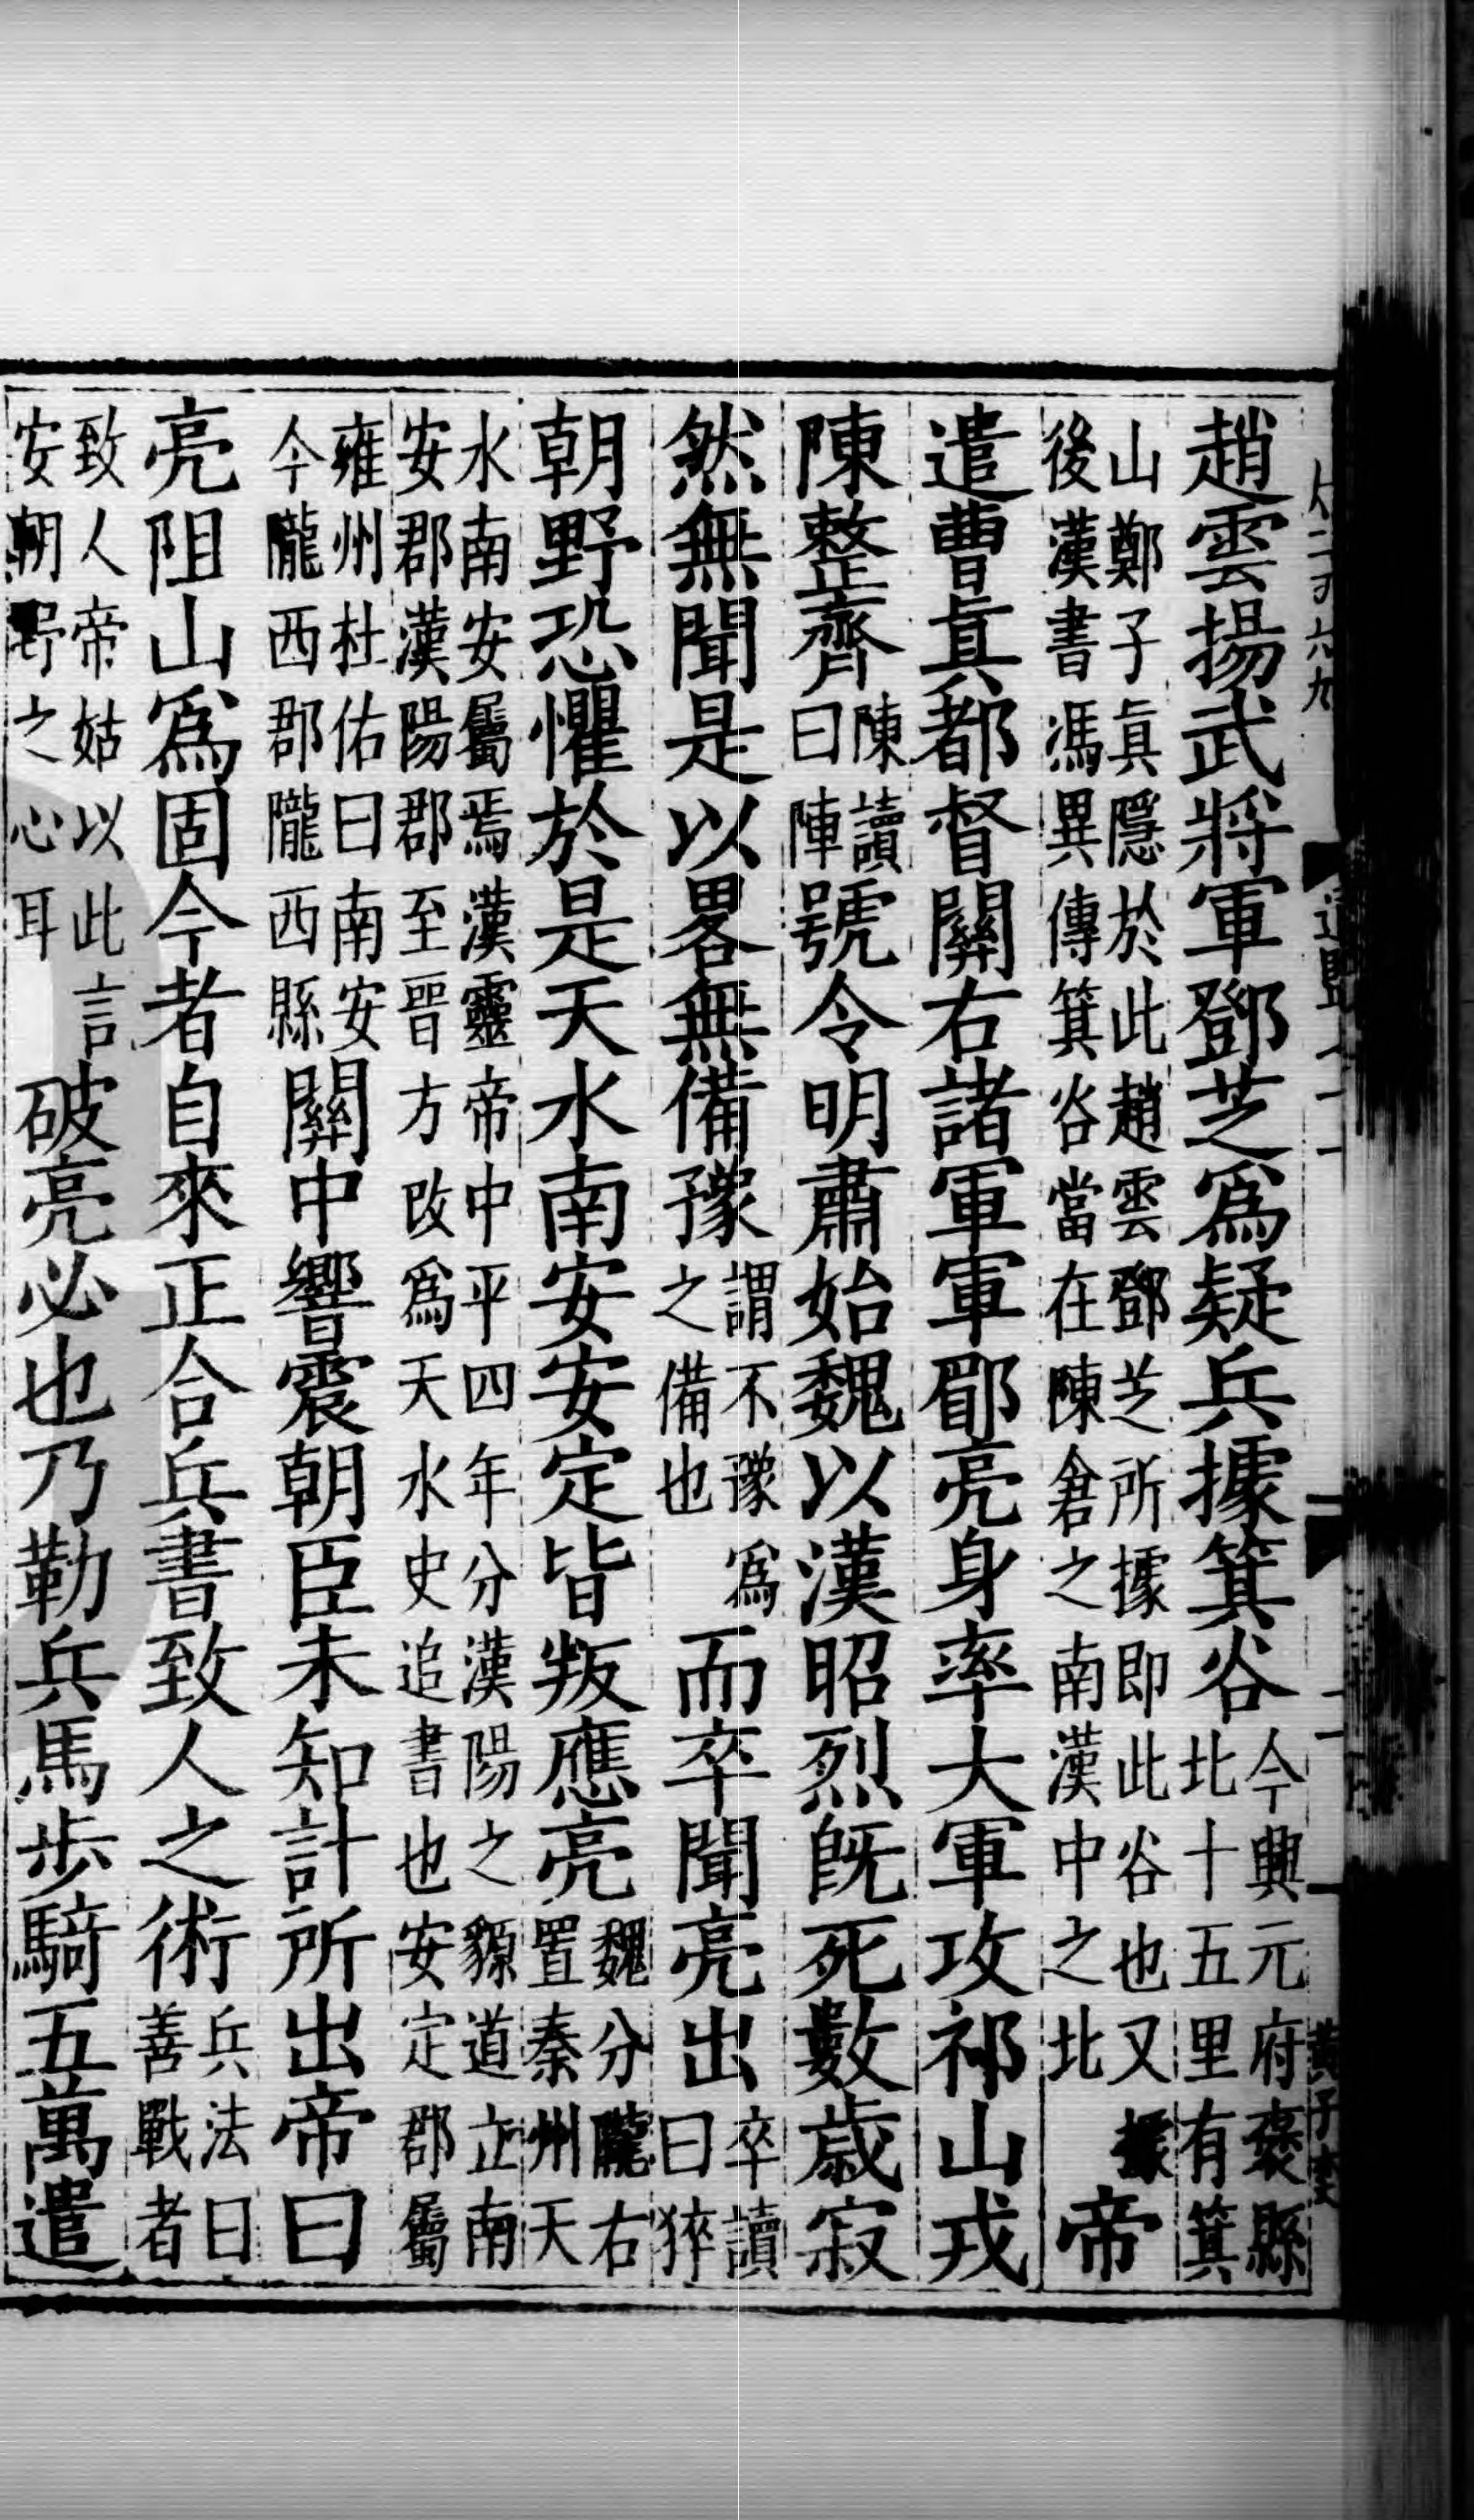 趙雲揚武將軍鄧芝爲疑兵據箕谷今興元府褒縣北十五里有箕
山鄭子眞隱於此趙雲鄧芝所據即此谷也又據後漢書馮異傳箕谷當在陳倉之南漢中之北帝
遣曹眞都督關右諸軍軍郿亮身率大軍攻祁山戎
陳整齊陳讀曰陣號令明肅始魏以漢昭烈旣死數歲寂
然無聞是以畧無備豫謂不豫爲之備也而卒聞亮出卒讀曰猝
朝野恐懼於是天水南安安定皆叛應亮魏分隴右置秦州天
水南安屬焉漢靈帝中平四年分漢陽之豲道立南安郡漢陽郡至晉方改爲天水史追書也安定郡屬
雍州杜佑曰南安今隴西郡隴西縣關中響震朝臣未知計所出帝曰
亮阻山爲固今者自來正合兵書致人之術兵法曰善戰者
致人帝姑以此言安朝野之心耳破亮必也乃勒兵馬步騎五萬遣